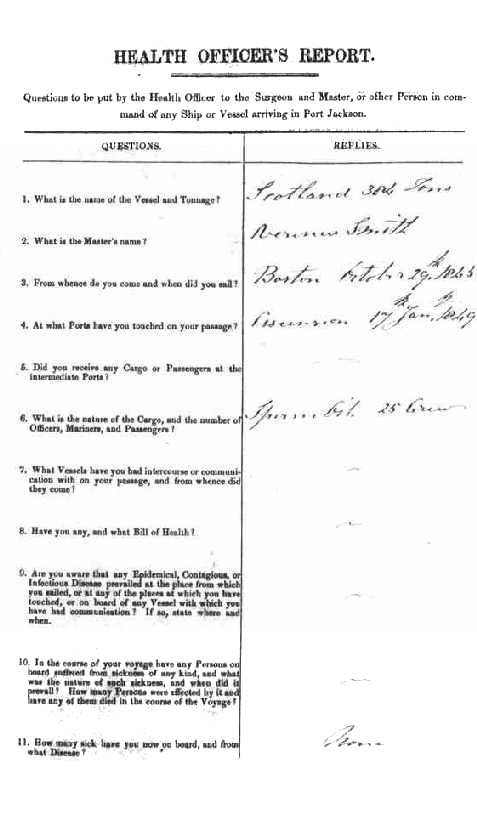 HEALTH OFFICER'S REPORT.
Questions to be put by the Health Officer to the Surgeon and Master, or other Person in com-
mand of any Ship or Vessel arriving in Port Jackson.
QUESTIONS. REPLIES.
1. What is the name of the Vessel and Tonnage? Scotland 384 Tons
2. What is the Master's name? Smith
3. From whence do you come and when did you sail? Boston October 29th
4. At what Ports have you touched on your passage? 17th Jany. 1849
5. Did you receive any Cargo or Passengers at the
intermediate Ports?
6. What is the nature of the Cargo, and the number of Sperm Oil. 25 Crew
Officers, Mariners, and Passengers?
7. What Vessels have you had intercourse or communi-
cation with on your passage, and from whence did
they come?
8. Have you any, and what Bill of Health?
9. Are you aware that any Epidemical, Contagious, or
Infectious Disease prevailed at the place from which
you sailed, or at any of the places at which you have
touched, or on board of any Vessel with which you
have had communication? If so, state where and
when.
10. In the course of your voyage have any Persons on
board suffered from sickness of any kind, and what
was the nature of such sickness, and when did it
prevail? How many Persons were affected by it and
have any of them died in the course of the Voyage?
11. How many sick have you now on board, and from None
what Disease?